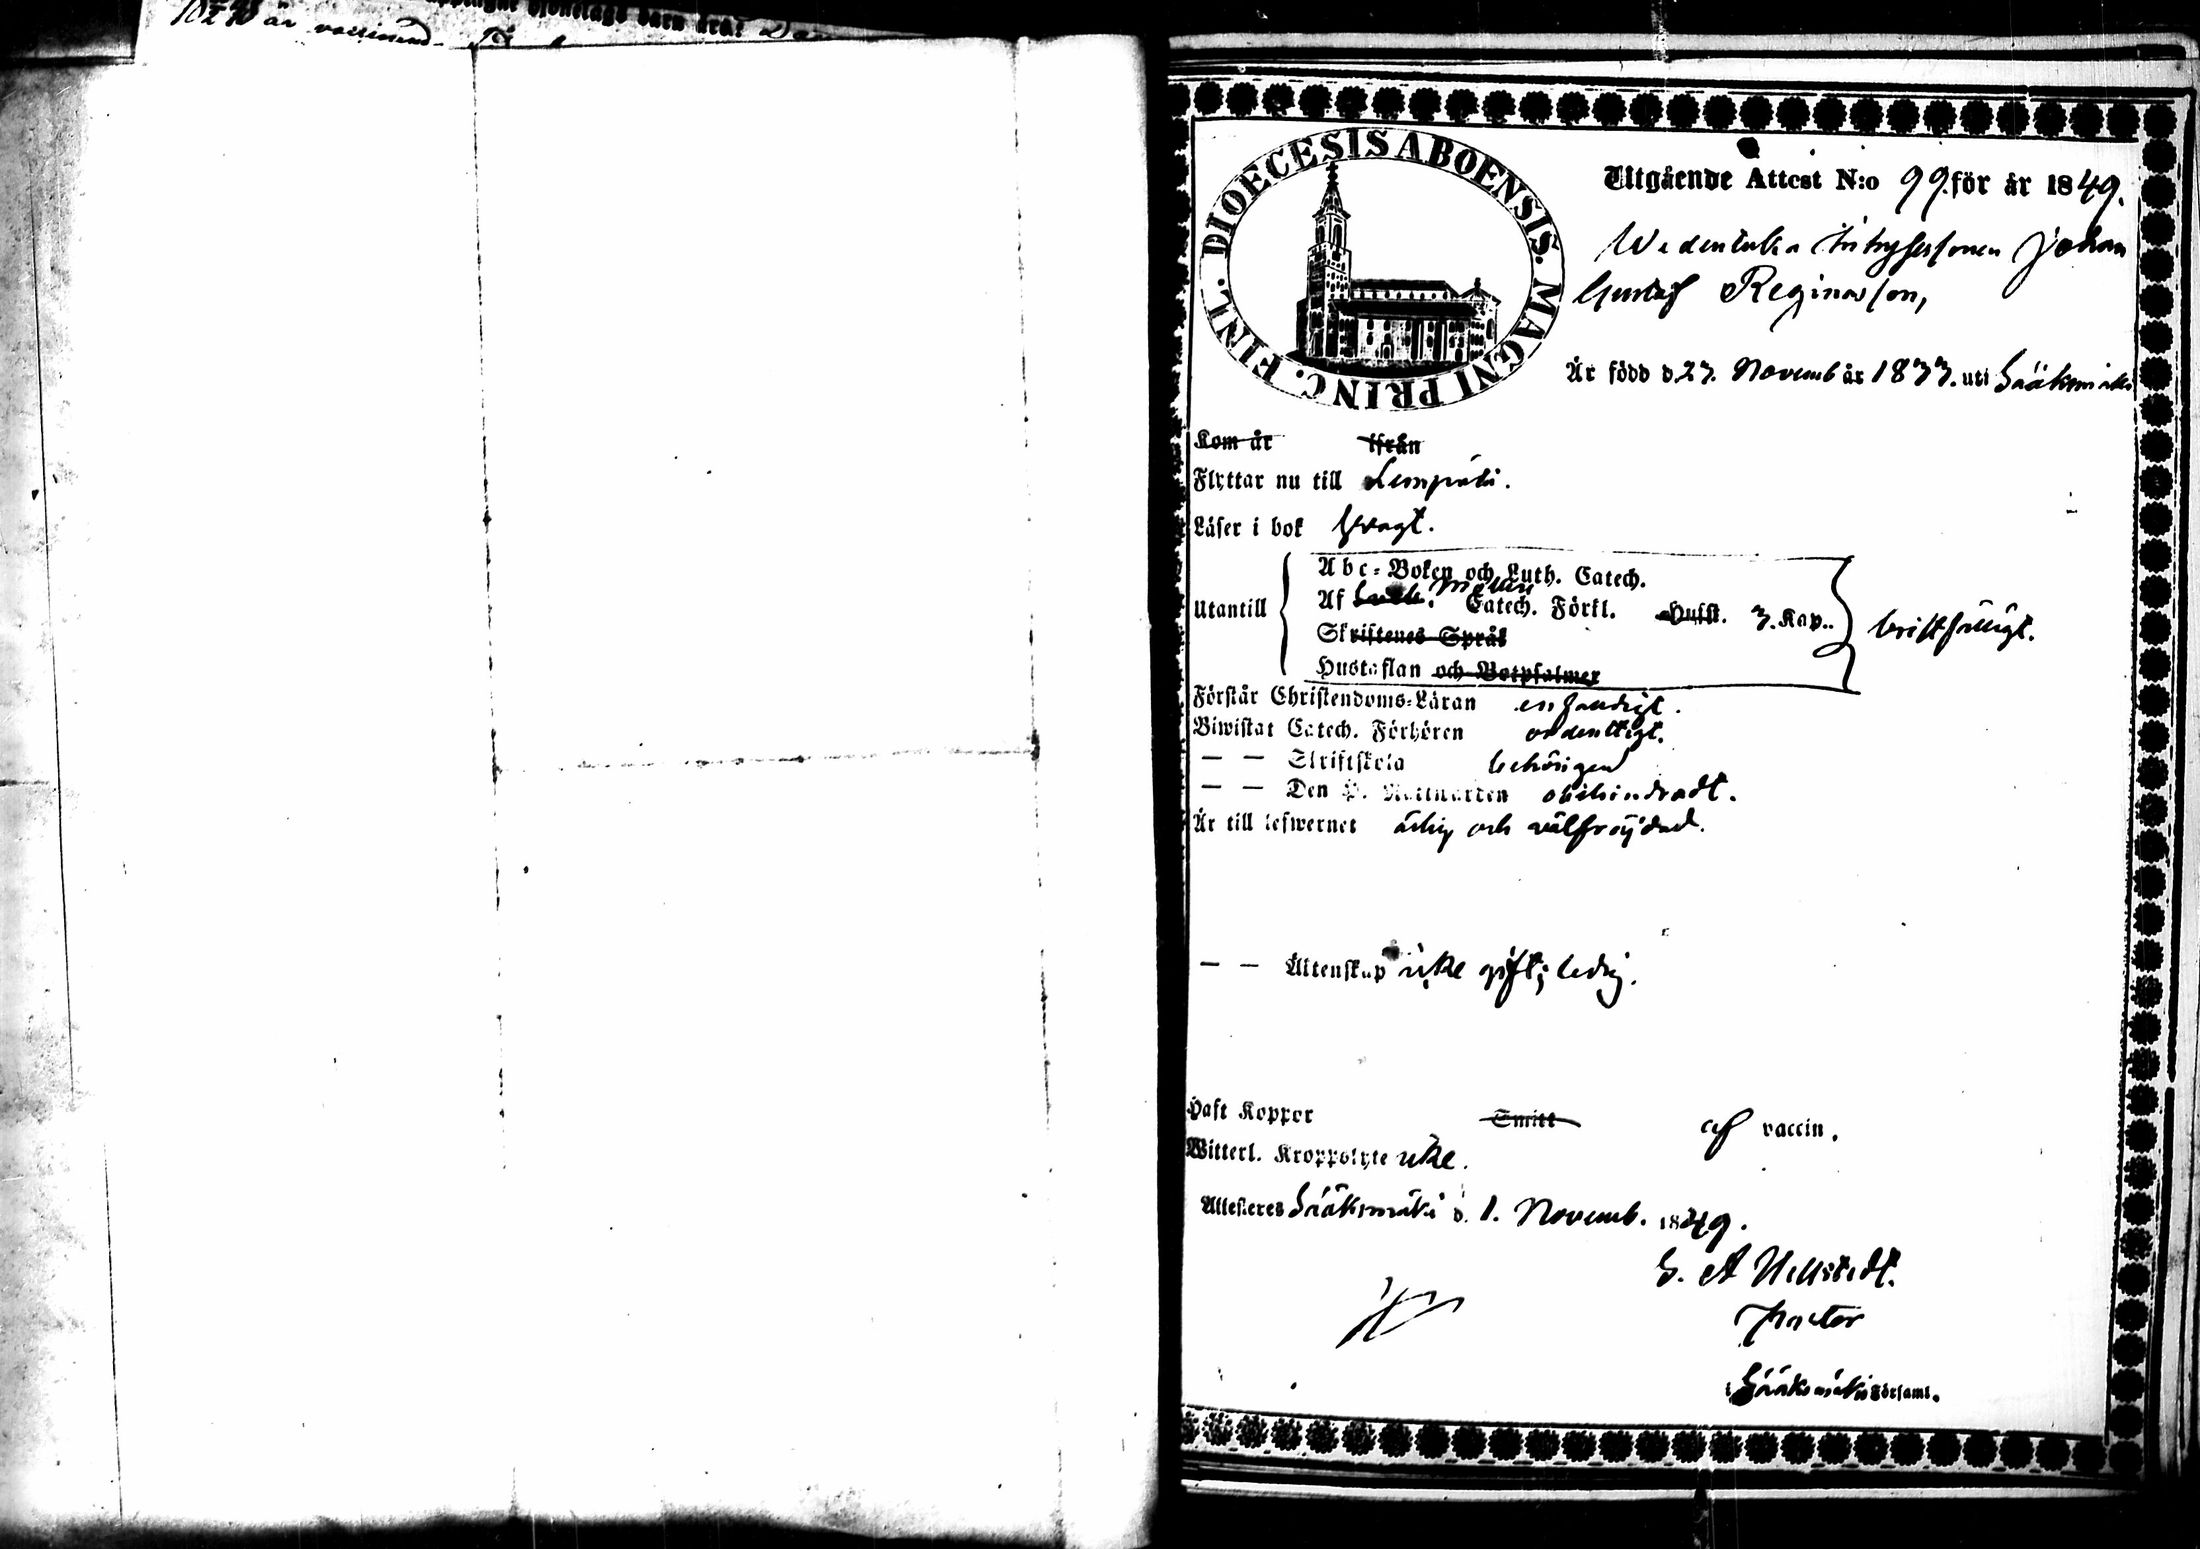 är vaccinerad.
DIOECESIS ABOENSIS. MAGNI PRINC. FINL.
Utgående Attest N:o 99. för år 1849.
Johan
Gustaf Reginasson,
Är född d 23. Novemb år 1833. uti Sääksmäki
Kom år ifrån
Flyttar nu till Lempäälä.
Läser i bok svagt.
Abc-Boken och Luth. Catech.
Utantill Af Catech. Förkl. Hufst. 3. Kap..
Skriftenes Språk
Hustaflan och Botpsalmer
bristfälligt.
Förstår Christendoms-Läran enfaldigt.
Biwistat Catech. Förhören ordentligt.
— — Skriftskola behörigen
— — Den H. Nattwarden obehindradt.
Är till lefwernet ärlig och välfrejdad.
— — Äktenskap icke gift; ledig.
Haft Koppor Smitt af vaccin.
Witterl. Kroppslyte icke.
Attesteres Sääksmäki d. 1. Novemb. 1849.
G. A Hellstedt.
Pastor
i Sääksmäki Församl.